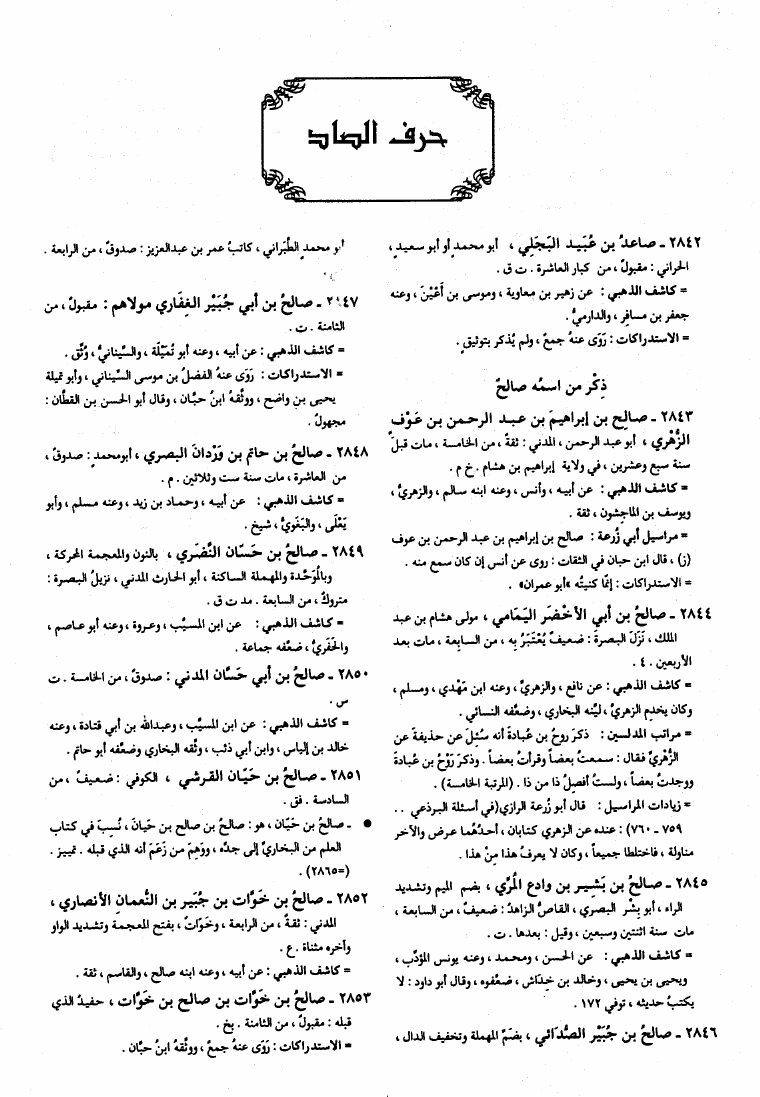 حرف الصاد
٢٨٤٢ ـ صاعدُ بن عُبَيد البَجَلي ، أبو محمدٍ أو أبو سعيدٍ ،
الحراني : مقبولٌ ، من كبار العاشرة . ت ق .
= كاشف الذهبي : عن زهير بن معاوية ، وموسى بن أَعْيَنَ ، وعنه
جعفر بن مسافر ، والدارميُّ .
= الاستدراكات : رَوَى عنهُ جمعٌ ، ولم يُذكر بتوثيقٍ .
ذِكْر من اسمُه صالحٌ
٢٨٤٣ ـ صالح بن إبراهيمَ بن عبد الرحمن بن عَوْف
الزُّهْري ، أبو عبد الرحمن ، المدني : ثقةٌ ، من الخامسة ، مات قبلَ
سنة سبع وعشرين ، في ولاية إبراهيم بن هشام . خ م .
= كاشف الذهبي : عن أبيه ، وأنس ، وعنه ابنه سالم ، والزهريُّ ،
ويوسف بن الماجِشون ، ثقة .
= مراسيل أبي زُرعة : صالح بن إبراهيم بن عبد الرحمن بن عوف
(ز) ، قال ابن حبان في الثقات : روى عن أنس إن كان سمع منه .
= الاستدراكات : إنما كنيتُه «أبو عمران» .
٢٨٤٤ ـ صالحُ بن أبي الأَخْضر اليَمَامي ، مولى هشام بن عبد
الملك ، نَزَلَ البصرةَ : ضعيفٌ يُعْتَبَرُ به ، من السابعة ، مات بعد
الأربعين . ٤ .
= كاشف الذهبي : عن نافع ، والزهريِّ ، وعنه ابن مَهْدي ، ومسلم ،
وكان يخدم الزهريَّ ، ليَّنه البخاري ، وضعَّفه النسائي .
= مراتب المدلسين : ذكرَ روحُ بن عُبادةَ أنه سُئِلَ عن حذيفةَ عن
الزُّهْريِّ فقال : سمعتُ بعضاً وقرأتُ بعضاً . وذكرَ رَوْحُ بن عُبادةَ
ووجدتُ بعضاً ، ولستُ أفصِلُ ذا من ذا . (المرتبة الخامسة) .
= زيادات المراسيل : قال أبو زُرعة الرازي(في أسئلة البرذعي . .
٧٥٩ ـ ٧٦٠) : عنده عن الزهري كتابان ، أحدُهُما عرض والآخر
مناولة ، فاختلطا جميعاً ، وكان لا يعرفُ هذا مِنْ هذا .
٢٨٤٥ ـ صالحُ بن بَشيرِ بن وادعٍ المُرِّي ، بضم الميم وتشديد
الراء ، أبو بِشْر البصري ، القاصُّ الزاهدُ : ضعيفٌ ، من السابعة ،
مات سنة اثنتين وسبعين ، وقيل : بعدها . ت .
= كاشف الذهبي : عن الحسن ، ومحمد ، وعنه يونس المؤدِّب ،
ويحيى بن يحيى ، وخالد بن خِداش ، ضعَّفوه ، وقال أبو داود : لا
يكتبُ حديثه ، توفي ١٧٢ .
٢٨٤٦ ـ صالحُ بن جُبَيْر الصُّدَائي ، بضمِّ المهملة وتخفيف الدال ،
أبو محمدٍ الطَّبَراني ، كاتبُ عمر بن عبدالعزيز : صدوقٌ ، من الرابعة .
٢٨٤٧ ـ صالحُ بن أبي جُبَيْر الغِفَاري مولاهم : مقبولٌ ، من
الثامنة . ت .
= كاشف الذهبي : عن أبيه ، وعنه أبو تُمَيْلَة ، والسِّينانيُّ ، وُثِّق .
= الاستدراكات : رَوَى عنهُ الفضلُ بن موسى السِّيناني ، وأبو تميلة
يحيى بن واضح ، ووثَّقهُ ابنُ حبَّان ، وقال أبو الحسن بن القطَّان :
مجهولٌ .
٢٨٤٨ ـ صالحُ بن حاتم بن وَرْدانَ البصري ، أبومحمدٍ : صدوقٌ ،
من العاشرة ، مات سنة ست وثلاثين . م .
= كاشف الذهبي : عن أبيه ، وحماد بن زيد ، وعنه مسلم ، وأبو
يَعْلَى ، والبَغَويُّ ، شيخ .
٢٨٤٩ ـ صالحُ بن حَسَّان النَّضَري ، بالنون والمعجمة المحركة ،
وبالمُوَحَّدة والمهملة الساكنة ، أبو الحارث المدني ، نزيلُ البصرة :
متروكٌ ، من السابعة . مد ت ق .
= كاشف الذهبي : عن ابن المسيَّب ، وعروة ، وعنه أبو عاصم ،
والحَفَريُّ ، ضعَّفه جماعة .
٢٨٥٠ ـ صالحُ بن أبي حَسَّان المدني : صدوقٌ ، من الخامسة . ت
س .
= كاشف الذهبي : عن ابن المسيَّب ، وعبدالله بن أبي قتادة ، وعنه
خالد بن إلياس ، وابن أبي ذئب ، وثَّقه البخاري وضعَّفه أبو حاتم .
٢٨٥١ ـ صالحُ بن حَيَّان القرشي ، الكوفي : ضعيفٌ ، من
السادسة . فق .
● ـ صالحُ بن حَيَّان ، هو : صالحُ بن صالح بن حَيَّانَ ، نُسِبَ في كتاب
العلم من البخاريِّ إلى جدِّه ، ووَهِمَ من زَعَمَ أنه الذي قبله . تمييز .
(=٢٨٦٥) .
٢٨٥٢ ـ صالحُ بن خَوَّات بن جُبَيرِ بن النُّعمانِ الأنصاري ،
المدني : ثقةٌ ، من الرابعة ، وخَوّاتٌ ، بفتح المعجمة وتشديد الواو
وآخره مثناة . ع .
= كاشف الذهبي : عن أبيه ، وعنه ابنه صالح ، والقاسم ، ثقة .
٢٨٥٣ ـ صالحُ بن خَوَّات بن صالح بن خَوَّات ، حفيدُ الذي
قبله : مقبولٌ ، من الثامنة . بخ .
= الاستدراكات : رَوَى عنهُ جمعٌ ، ووثَّقهُ ابنُ حبَّان .